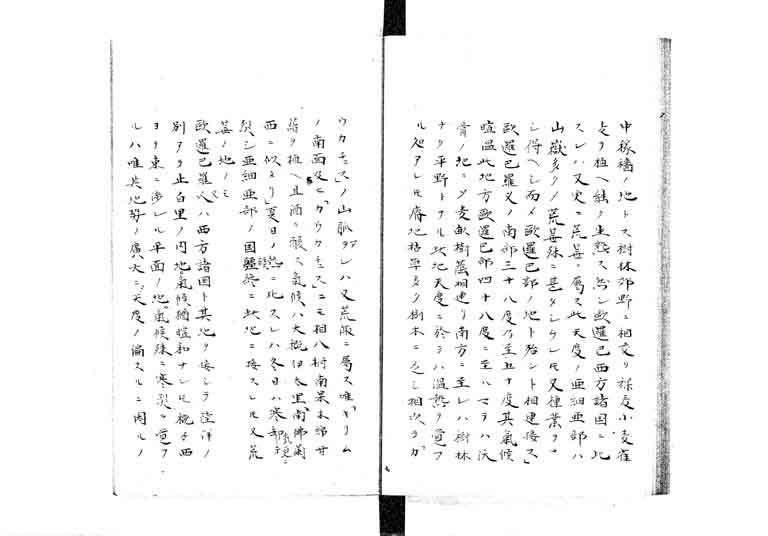 中稼穡ノ地トス樹林郊野ニ相交リ裸麦小麦雀
麦ヲ植ヘ能ク生熟ス然シ欧邏巴西方諸国ニ比
スレハ又更ニ荒蕪ニ属ス此天度ノ亜細亜部ハ
山嶽多クメ荒蕪殊ニ甚タシケレモ又種業ヲナ
シ得ヘシ而メ欧邏巴部ノ地ト殆ント相連接ス
欧邏巴羅叉ノ南部三十八度乃至五十度其気候
暄温此地方欧邏巴部四十八度ニ至ルマテハ沃
膏ノ地ニメ麦畝樹蔭相連リ南方ニ至レハ樹林
ナク平野トナル此地天度ニ於テハ温熱ヲ覚フ
ル処アレモ瘠地枯草多ク樹木ニ乏シ相次クカ
ウカチュスノ山脈ダレハ又荒敗ニ属ス唯ギリム
ノ南面及ヒガウカチュスニモ相ハ樹南果木葡廿
蔗ヲ植ヘ且酒ヲ醸ス気候ハ大概伊太里南佛蘭
西ニ似タリ夏日ノ熱ニ比スレハ冬日ハ寒却テ気更ニ
烈シ亜細亜部ノ国疆終ニ此地ニ接スレモ又荒
蕪ノ地ノミ
欧邏巴羅叉ハ西方諸国ト其地ヲ接シテ陸洋ノ
別アリ止百里ノ内地気候稍暄和ナレモ概子西
ヨリ東ニ渉レル平面ノ地気候殊ニ寒烈ヲ覚フ
ルハ唯其地勢ノ廣大ニ天度ノ偏スルニ因ルノ